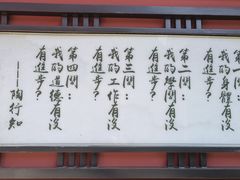 我的身體有沒
有進步?
第二問:
我的學問有沒
有進步?
第三問:
我的工作有沒
有進步?
第四問:
我的道德有沒
有進步?
——陶行知